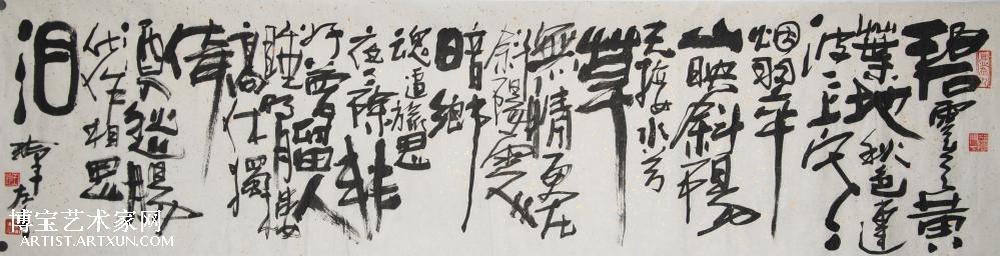 碧雲天黄
葉地秋色連
波々上寒
烟翠
山映斜陽
天接水芳
草
無情更在
斜陽外
暗鄉
魂追旅思
夜々除非
好夢留人
睡明月楼
高休獨
倚
酒入愁腸
化作相思
泪
博宝艺术家网
ARTIST.ARTXUN.COM